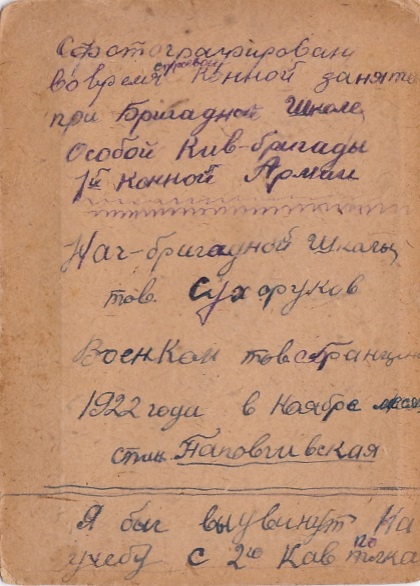 Сфотографирован
во время строевой Конной заняте
при Бригадной Школе
Особой Кав-бригады
1й Конной Армии
Нач-бригадной Школы
тов. Сухоруков
Военком тов
1922 годи в Ноябре меся
стан. Паповичевская
Я был выдвинут на
учебу с 2го Кав полка